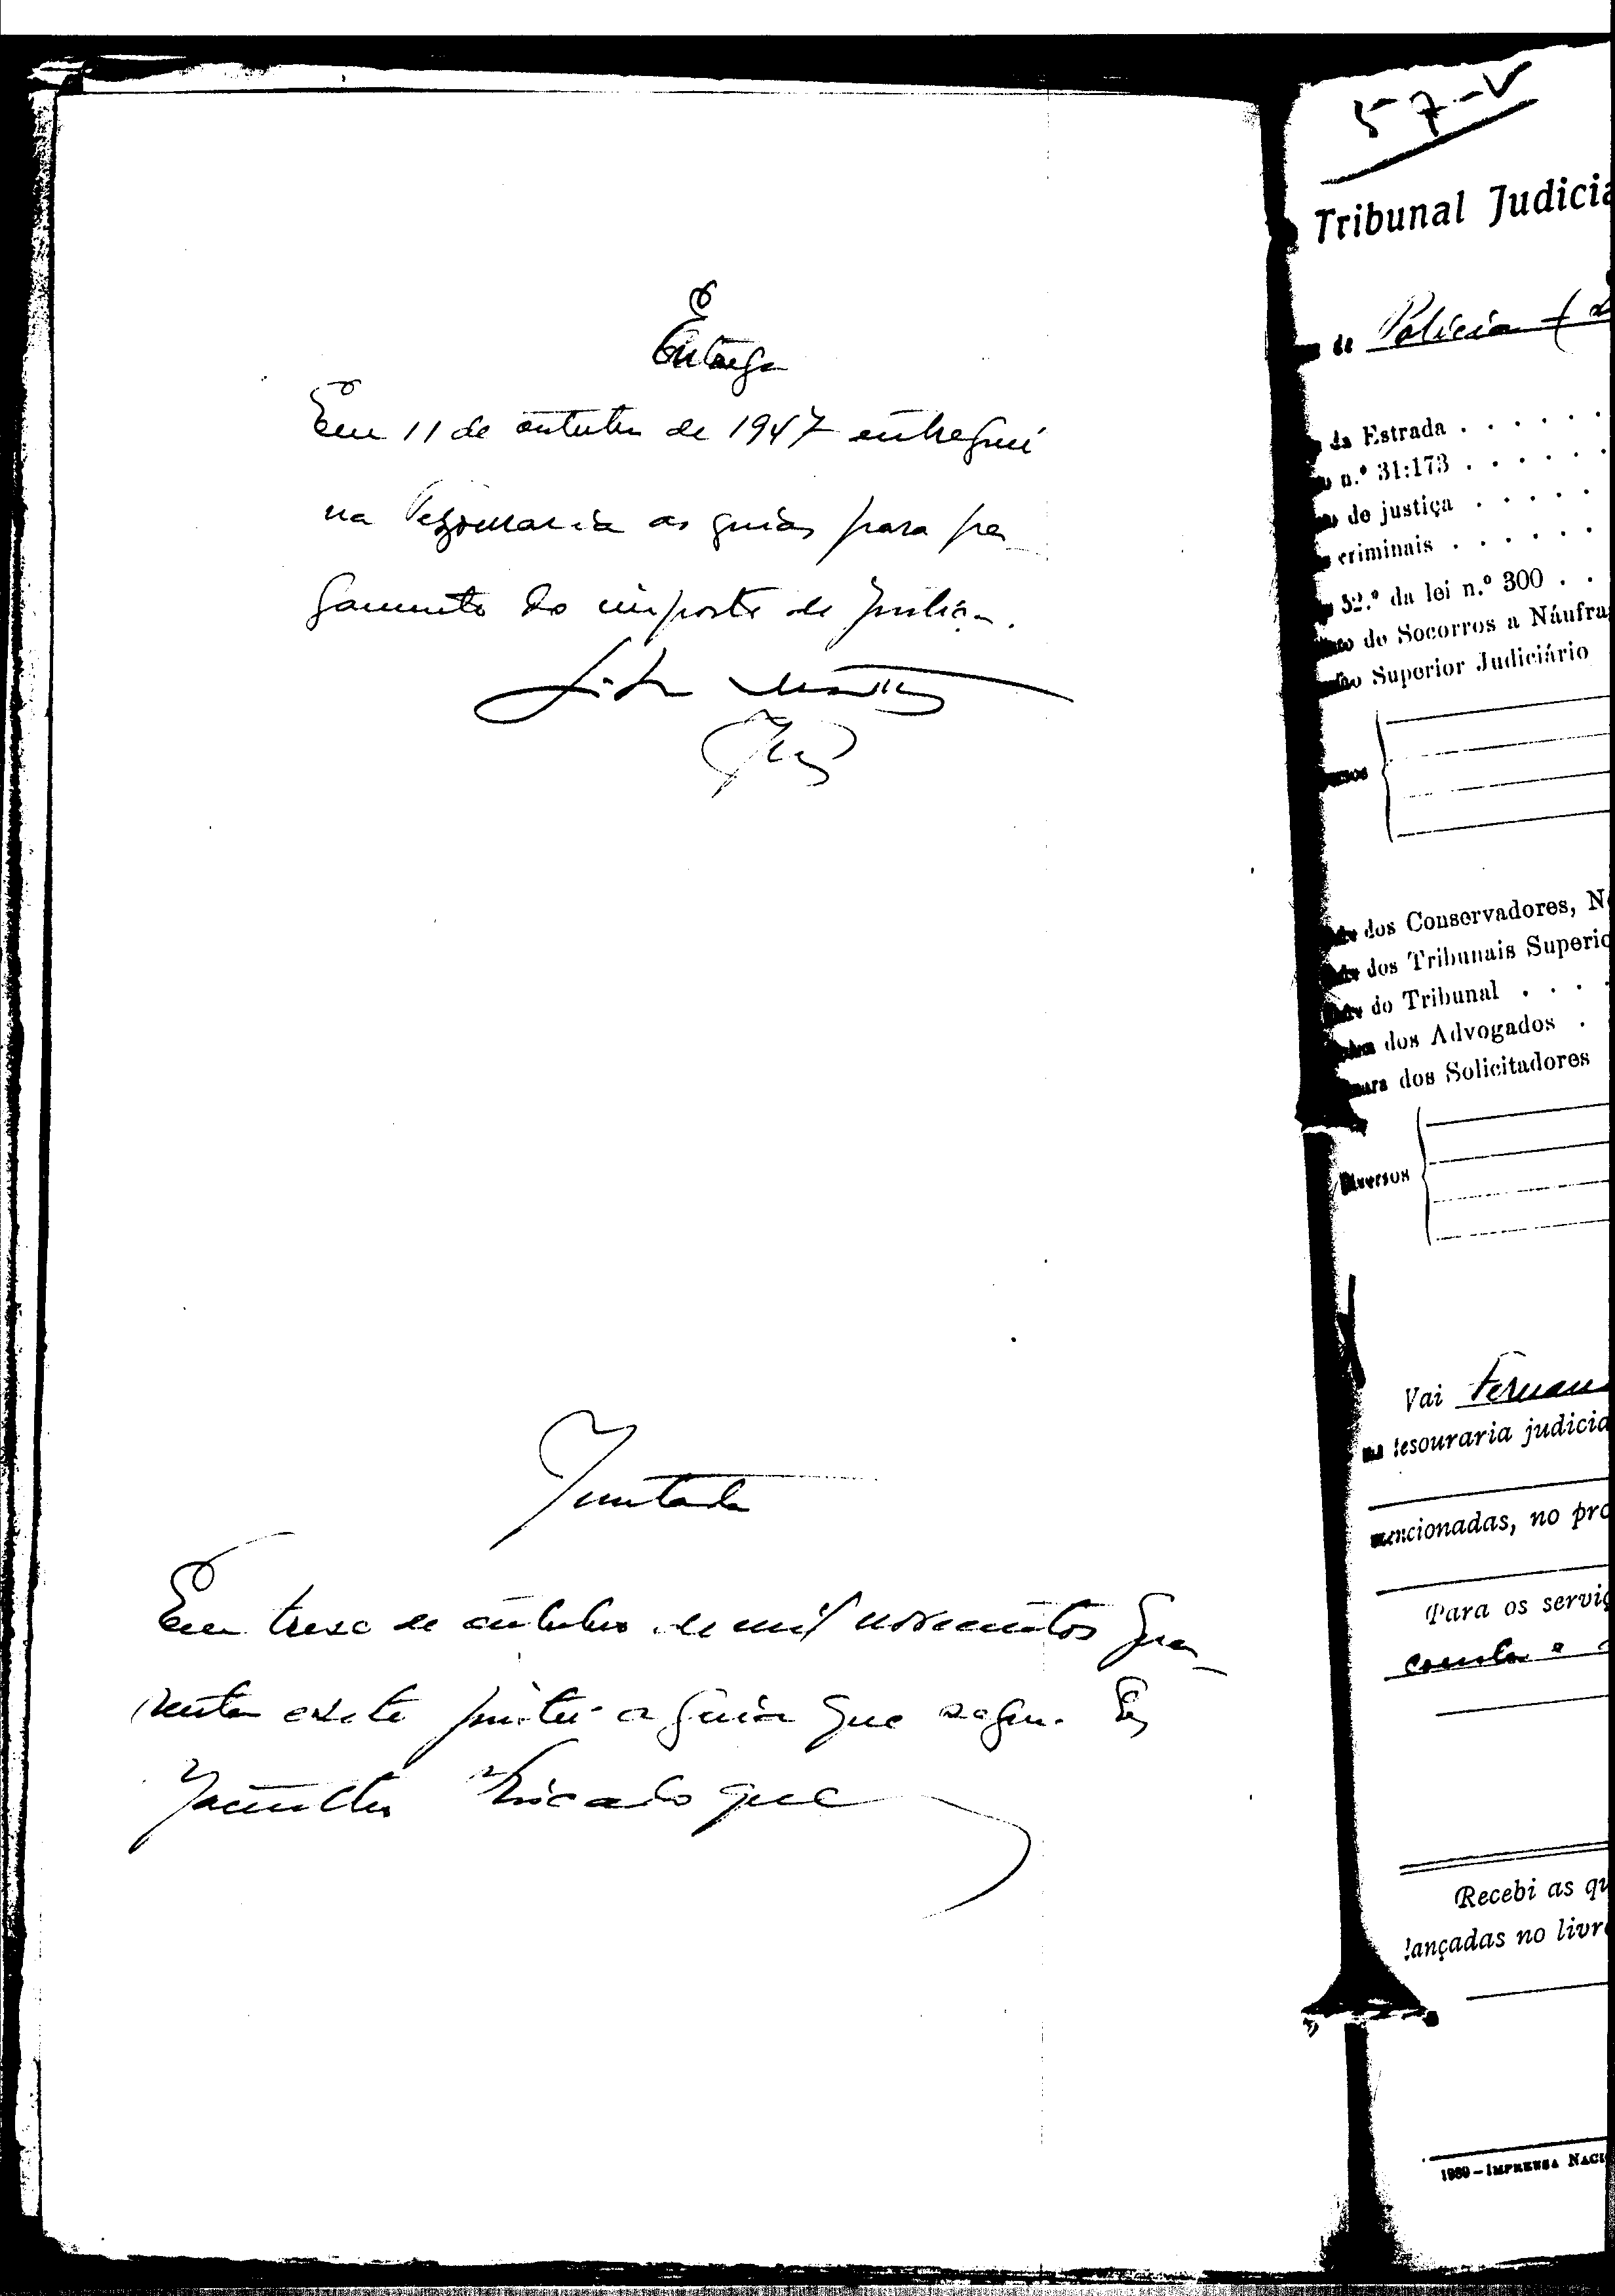 Entrega
Em 11 de outubro de 1947 entreguei
na Tezouraria as guias para pa_
gamento do imposto de justiça.
Juntada
Em treze de outubro de mil novecentos qua_
renta e sete juntei a guia que segue. Eu
que
57-V
Tribunal Judicia
de Policia (
da Estrada . . . . . .
n.º 31:173 . . . . . .
de justiça . . . . .
criminais . . . . . .
52.º da lei n.º 300 . .
de Socorros a Náufra
Superior Judiciário
dos Conservadores, N
dos Tribunais Superio
do Tribunal . . . .
dos Advogados .
dos Solicitadores
Diversos
Vai Fernan
na tesouraria judicia
mencionadas, no pro
Para os serviç
conta
Recebi as qu
lançadas no livr
1939 – IMPRENSA NACI